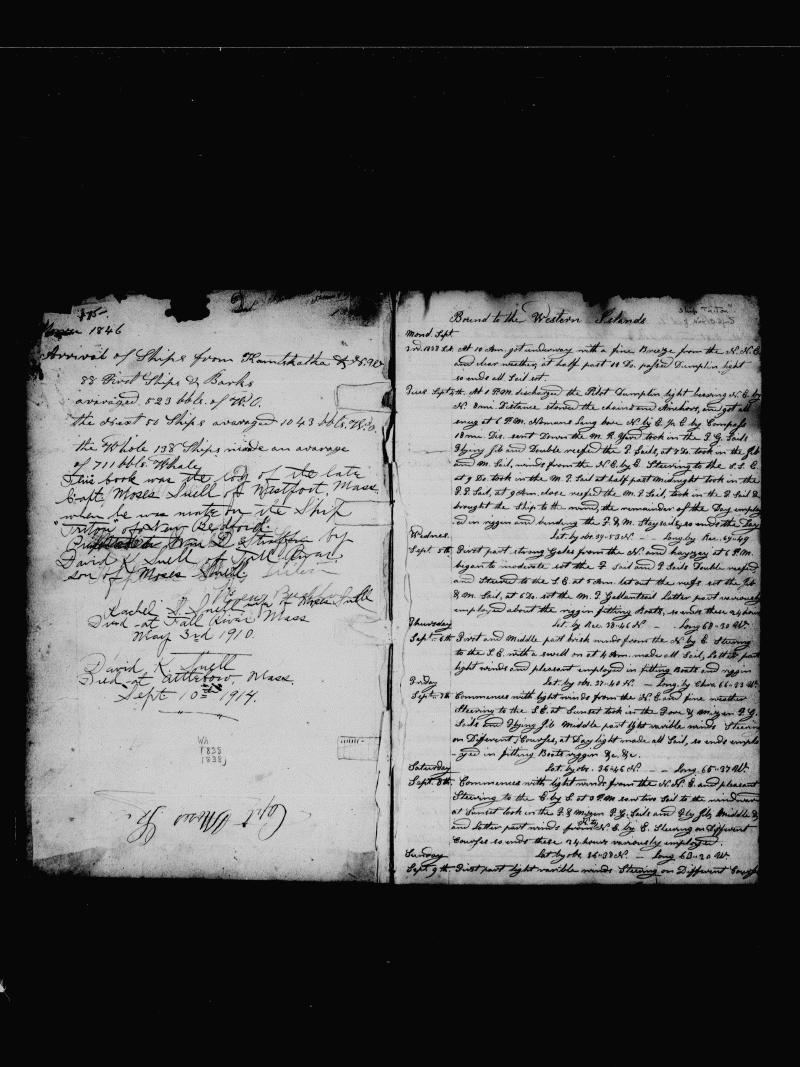 1846
Arrival of Ships from Kamtskatka & N.W.
88 First Ships & Barks
averaged 523 bbls. of W.O.
the Next 50 Ships avaraged 1043 bbls. W.O.
the Whole 138 Ships made an avarage
of 711 bbls. Whale
This book was the log of the late
Capt. Moses Snell of Westport, Mass.
when he was mate on the Ship
"Triton" of New Bedford.
by
David K. Snell of Fall River
son of Moses Snell.
Rachel S. Snell wife of Moses Snell
Died at Fall River Mass
May 3rd 1910.
David K. Snell
Died at Attleboro, Mass.
Sept 10th 1914.
Wh
1838
1838)
Capt Moses
Bound to the Western Islands
Mond. Sept
3rd. 1838 At 10 Am. got underway with a fine Breeze from the N.N.E.
and clear weather, at half past 12 Do. passed Dumplin light
so ends all Sail set.
Tues. Sept. 4th. At 1 P.M. discharged the Pilot Dumplin light bearing N.E. by
N. 8 mi. Distance stowed the chains and Anchors, and got all
snug at 6 P.M. Nomans Land bore N. by E. ½ E. by Compass
18 mi. Dis. sent Down the M. R. Yard took in the T. G. Sails
Flying Jib and Double reefed the T. Sails, at 8 Do. took in the Jib
and M. Sail, winds from the N.E. by E. Steering to the S.S.E.
at 9 Do. took in the M. T. Sail at half part Midnight took in the
F. T. Sail, at 9 Am. close reefed the M. T. Sail, took in the F. Sail &
brought the Ship to the wind, the remainder of the Day employ
ed in riggin and bending the F. & M. Stay sails, so ends the Day
Lat. by obs. 39-53 N. - Long by Rec. 69-49
Wednes.
Sept. 5th First part strong Gales from the N. and hazy, at 6 P.M.
began to moderate set the F. Sail and T. Sails Double reefed
and Steered to the S.E. at 5 Am. let out the reefs set the Jib
& M. Sail, at 6 Do. set the M. T. Gallantsail Latter part variously
employed about the riggin fitting Boats, so ends these 24 hours
Thursday Lat. by Rec. 38-46 N. - Long 68-30 W.
Sept. 6th First and Middle part brisk winds from the N. by E. Steering
to the S.E. with a swell on at 4 Am. made all Sail, Latter part
light winds and pleasant employed in fitting Boats and riggin
Friday Lat. by obs. 37-40 N. - Long. by Chro. 66-23 W.
Sept. 7th Commences with light winds from the N.E. and fine weather
Steering to the S.E. at Sunset took in the Fore & Mizen T. G.
Sails and Flying Jib Middle part light varible winds Steering
on Different Courses, at Day light made all Sail, so ends emplo
-yed in fitting Boats riggin &c &c.
Saturday Lat. by obs. 36-46 N. - - Long. 65-37 W.
Sept. 8th. Commences with light winds from the N.N.E. and pleasant
Steering to the E. by S. at 3 P.M. saw two Sail to the windward
at Sunset took in the F. & Mizen T. G. Sails and Fly Jib, Middle &
and Latter part winds from N. E. by E. Steering on Different
Courses so ends these 24 hours variously employed.
Sunday Lat. by obs 36-38 N. - Long 63-20 W.
Sept. 9th. First part light varible winds Steering on Different Courses